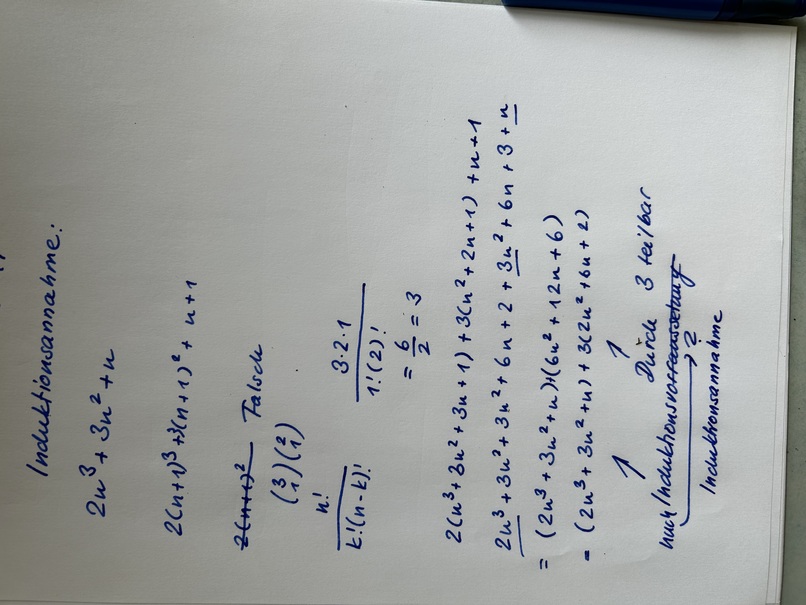 Induktionsannahme:
2n³ + 3n² + n
2(n+1)³ + 3(n+1)² + n+1
2(n+1)² Falsch
(3 1)(2 1)
n! / k!(n-k)!
3·2·1 / 1!(2)!
= 6/2 = 3
2(n³ + 3n² + 3n + 1) + 3(n² + 2n + 1) + n + 1
2n³ + 3n² + 3n² + 6n + 2 + 3n² + 6n + 3 + n
= (2n³ + 3n² + n) + (6n² + 12n + 6)
= (2n³ + 3n² + n) + 3(2n² + 6n + 2)
↑ ↑
Durch 3 teilbar
nach Induktionsvoraussetzung
→ ?
Induktionsannahme